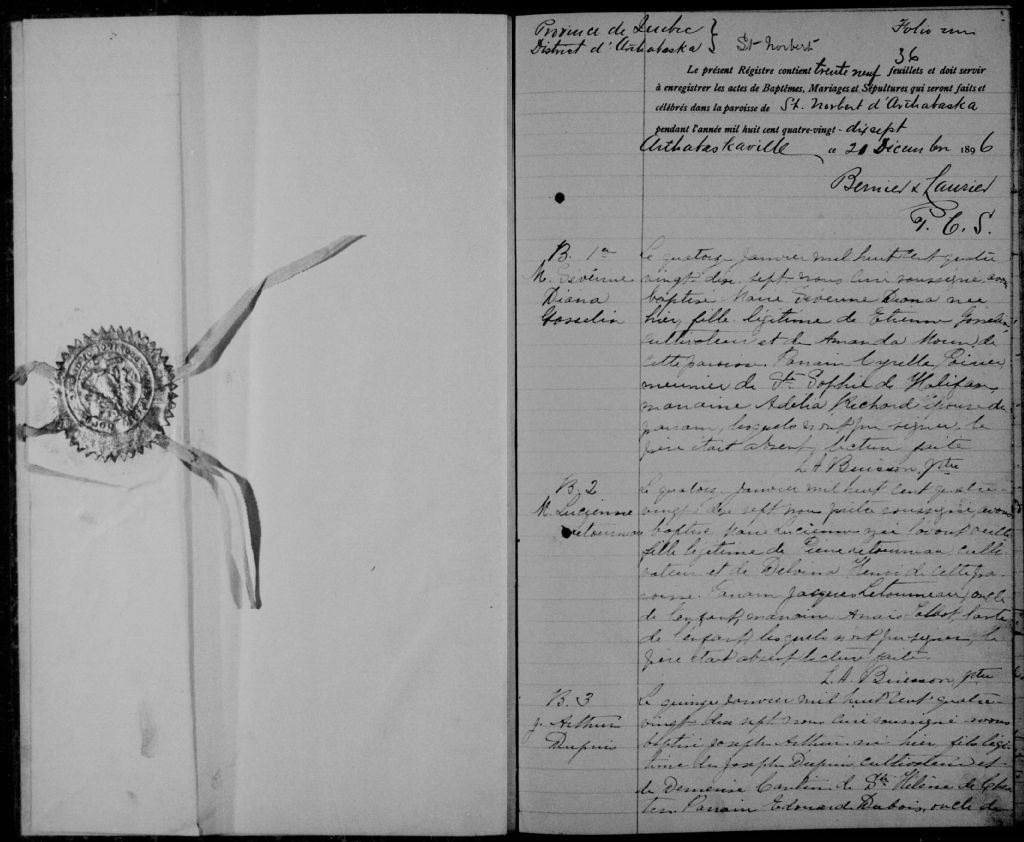 Province de Quebec }
District d'Arthabaska } St Norbert
Folio un
36
Le présent Régistre contient trente neuf feuillets et doit servir
à enregistrer les actes de Baptêmes, Mariages et Sépultures qui seront faits et
célébrés dans la paroisse de St. Norbert d'Arthabaska
pendant l'année mil huit cent quatre-vingt-dix sept
Arthabaskaville ce 21 Décembre 1896
Bernier & Laurier
P. C. S.
B. 1re
M. Sévérine
Diana
Gosselin
Le quatorze Janvier mil huit cent quatre
vingt dix sept nous curé soussigné avons
baptisé Marie Severine Diana née
hier, fille légitime de Etienne Gosselin
cultivateur et de Amanda
cette paroisse. Parrain Cyrille Poirier
meunier de Ste Sophie de Halifax,
marraine Adélia Richard épouse du
parrain, lesquels n'ont pu signer, le
père était absent, lecture faite
L. A. Buisson, Ptre
B. 2
M. Lucienne
Letourneau
Le quatorze Janvier mil huit cent quatre-
vingt dix sept nous prêtre soussigné avons
baptisé Marie Lucienne née
fille légitime de Pierre Letourneau culti-
vateur et de Delvina Henri de cette pa-
roisse. Parrain Jacques Letourneau, oncle
de l'enfant, marraine Anais Talbot, tante
de l'enfant, lesquels n'ont pu signer, le
père était absent lecture faite.
L. A. Buisson, Ptre
B. 3
J. Arthur
Dupuis
Le quinze Janvier mil huit cent quatre-
vingt dix sept nous curé soussigné avons
baptisé Joseph Arthur né hier, fils légi-
time de Joseph Dupuis cultivateur et
de Demerise Cantin de Ste Hélène de Ches-
ter. Parrain Edouard Dubois, oncle de